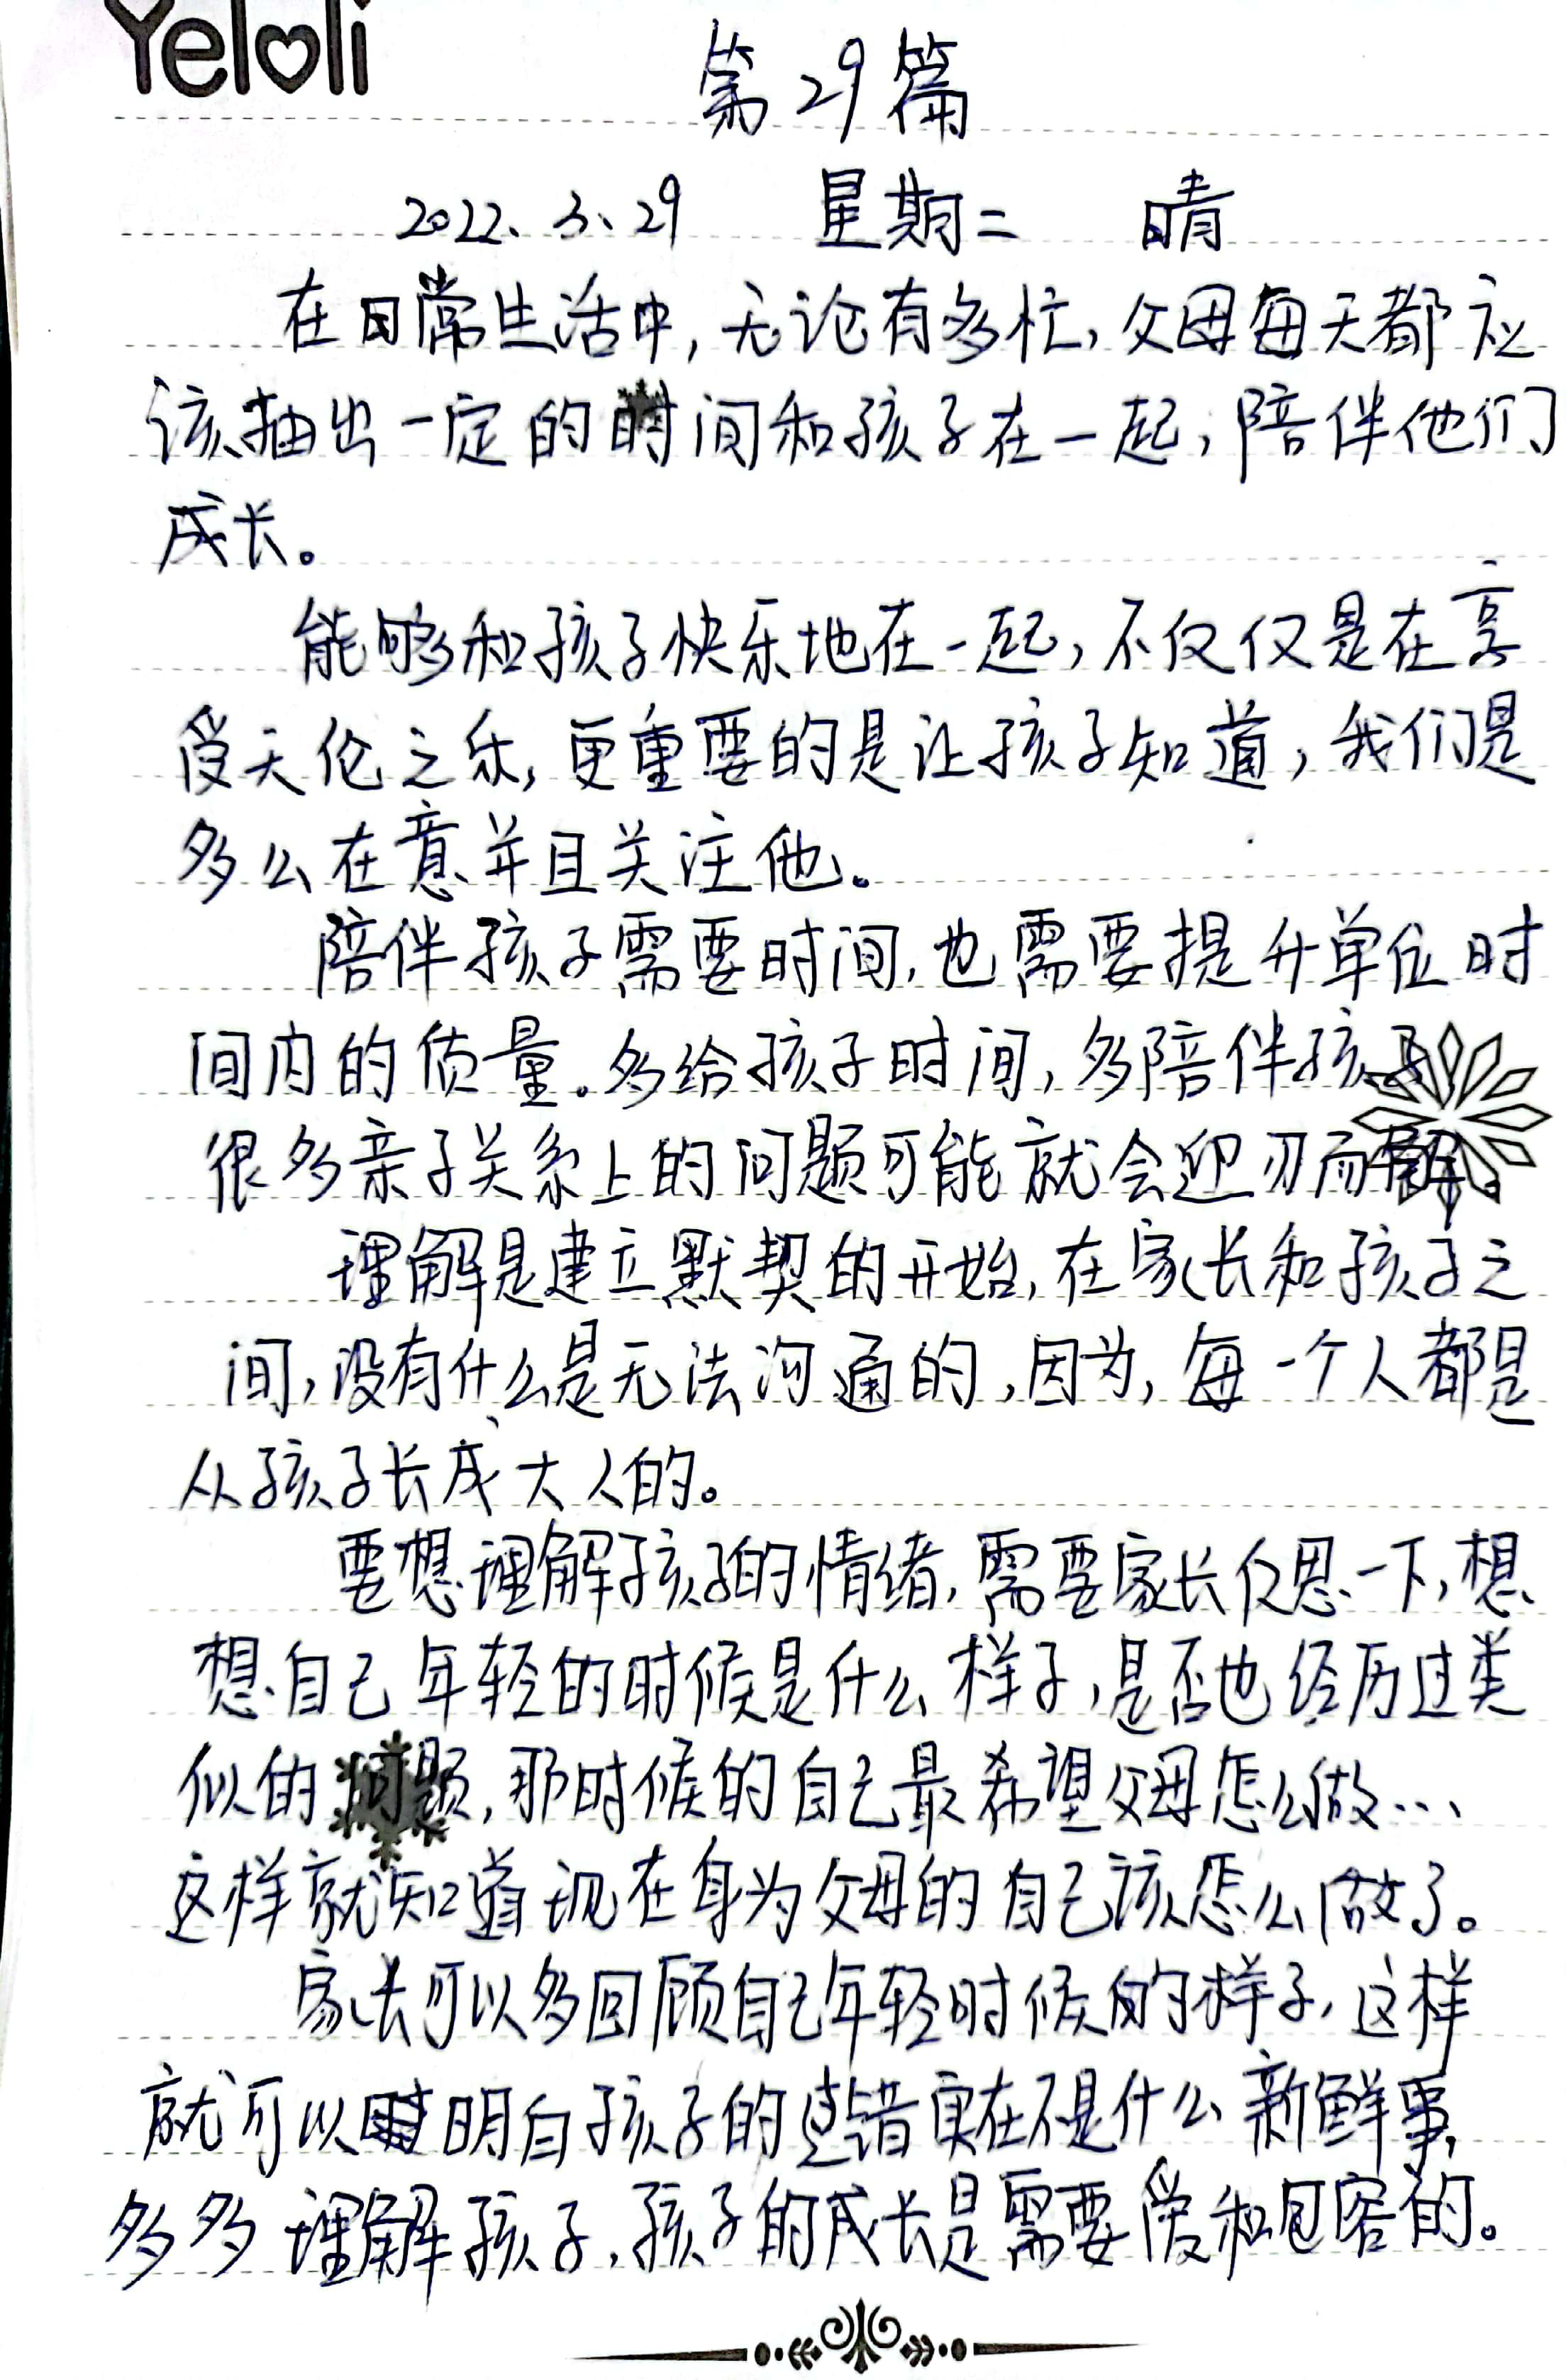 Yeloli
第29篇
2022、3、29 星期二 晴
在日常生活中,无论有多忙,父母每天都应
该抽出一定的时间和孩子在一起,陪伴他们
成长。
能够和孩子快乐地在一起,不仅仅是在享
受天伦之乐,更重要的是让孩子知道,我们是
多么在意并且关注他。
陪伴孩子需要时间,也需要提升单位时
间内的质量。多给孩子时间,多陪伴孩子,
很多亲子关系上的问题可能就会迎刃而解。
理解是建立默契的开始,在家长和孩子之
间,没有什么是无法沟通的,因为,每一个人都是
从孩子长成大人的。
要想理解孩子的情绪,需要家长反思一下,想
想自己年轻的时候是什么样子,是否也经历过类
似的问题,那时候的自己最希望父母怎么做…
这样就知道现在身为父母的自己该怎么做了。
家长可以多回顾自己年轻时候的样子,这样
就可以明白孩子的过错实在不是什么新鲜事,
多多理解孩子,孩子的成长是需要爱和包容的。